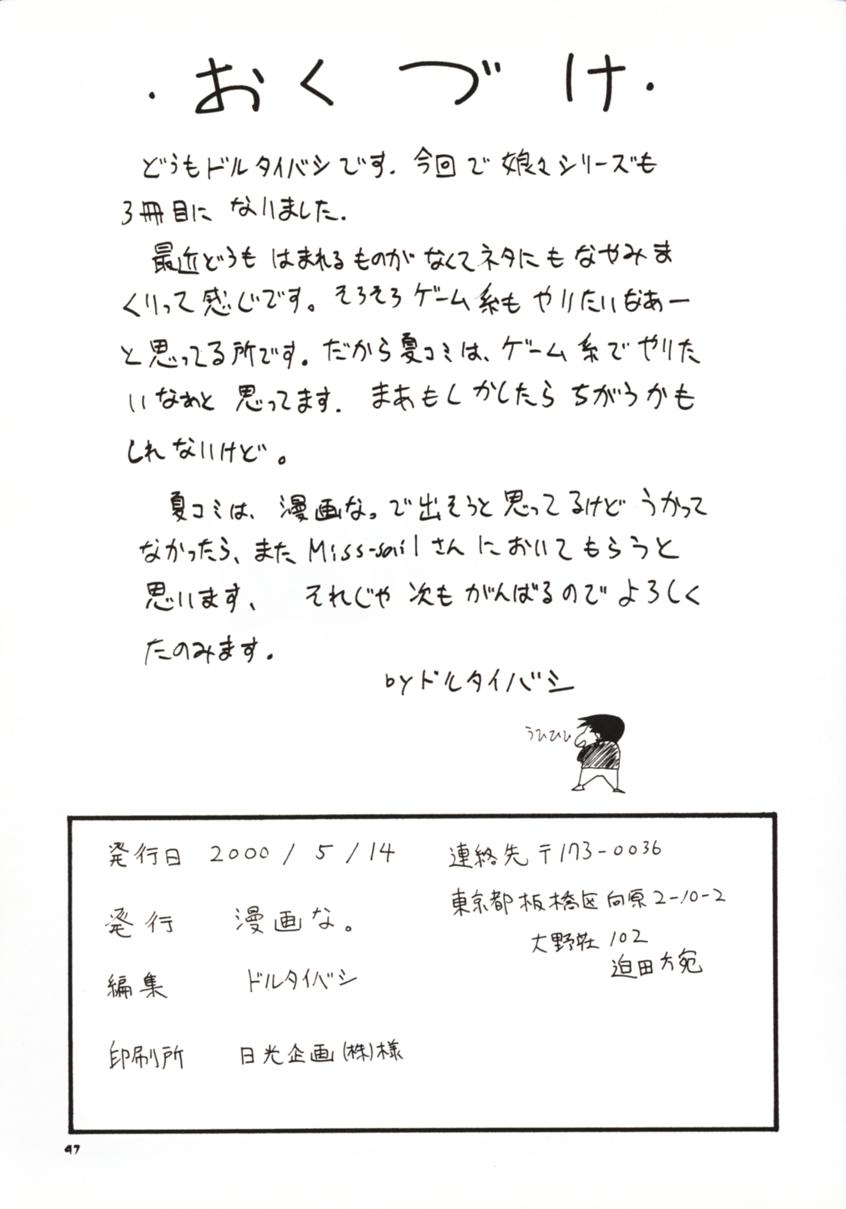 ・おくづけ・
どうもドルタイバシです．今回で娘々シリーズも
3冊目になりました．
最近どうもはまれるものがなくてネタにもなやみま
くりって感じです。そろそろゲーム系もやりたいなあー
と思ってる所です。だから夏コミは、ゲーム系でやりた
いなぁと思ってます．まあもしかしたらちがうかも
しれないけど。
夏コミは、漫画な。で出そうと思ってるけどうかって
なかったら、またMiss-sailさんにおいてもらうと
思います、それじゃ次もがんばるのでよろしく
たのみます。
byドルタイバシ
うひひひ
発行日 2000/5/14
発行 漫画な。
編集 ドルタイバシ
印刷所 日光企画(株)様
連絡先〒173-0036
東京都板橋区向原2-10-2
大野荘102
迫田方宛
47